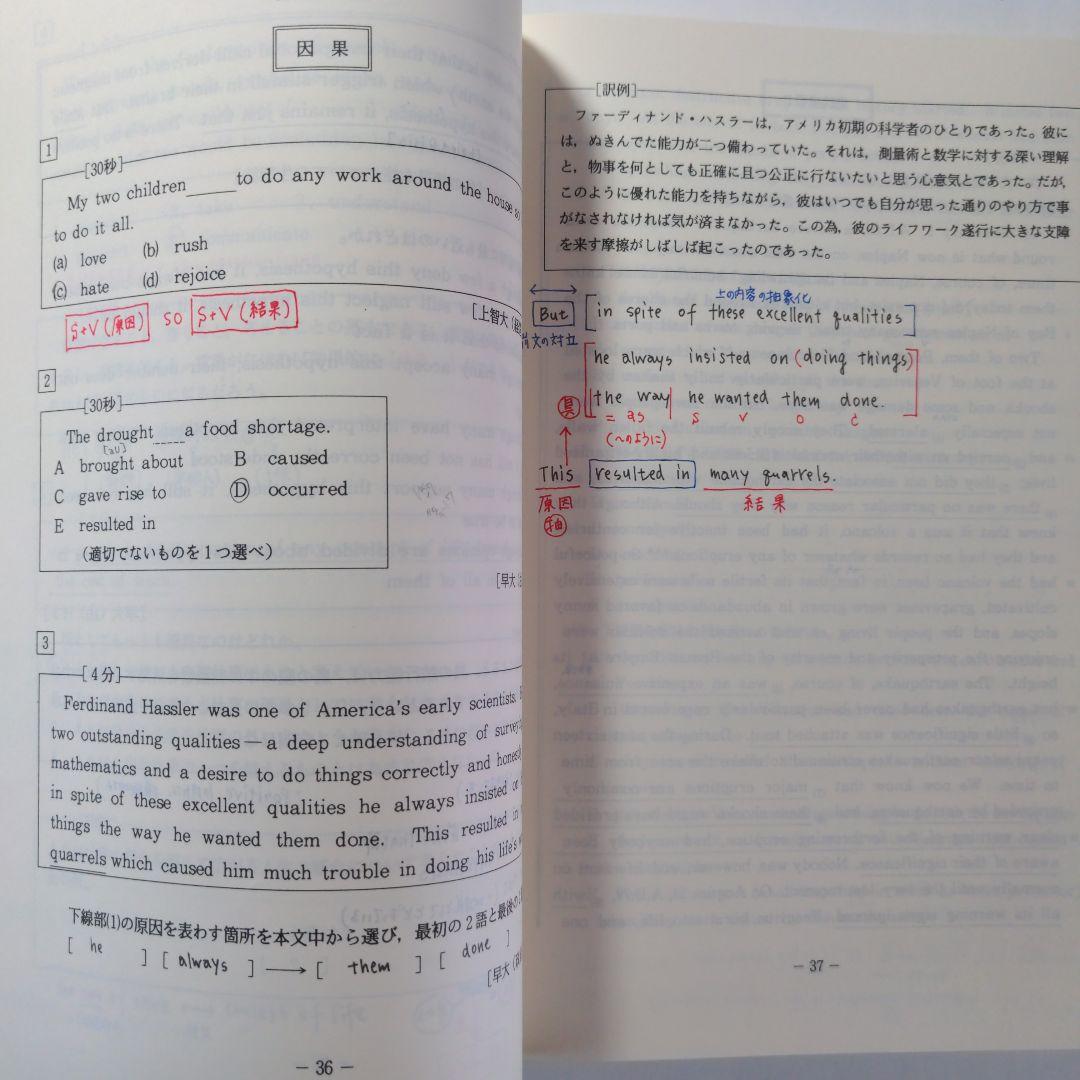 因 果
1
[30秒]
My two children _____ to do any work around the house so
to do it all.
(a) love (b) rush
(c) hate (d) rejoice
S+V(原因) so S+V(結果)
[上智大
2
[30秒]
The drought_____a food shortage.
[au]
A brought about B caused
C gave rise to D occurred
E resulted in
(適切でないものを1つ選べ)
[早大
3
[4分]
Ferdinand Hassler was one of America's early scientists.
two outstanding qualities—a deep understanding of
mathematics and a desire to do things correctly and
in spite of these excellent qualities he always insisted
things the way he wanted them done. This resulted
quarrels which caused him much trouble in doing his life's
下線部(1)の原因を表わす箇所を本文中から選び，最初の2語と最後の
[ he ] [ always ] → [ them ] [ done ]
[早大
— 36 —
[訳例]
ファーディナンド・ハスラーは，アメリカ初期の科学者のひとりであった。彼に
は，ぬきんでた能力が二つ備わっていた。それは，測量術と数学に対する深い理解
と，物事を何としても正確に且つ公正に行ないたいと思う心意気とであった。だが，
このように優れた能力を持ちながら，彼はいつでも自分が思った通りのやり方で事
がなされなければ気が済まなかった。この為，彼のライフワーク遂行に大きな支障
を来す摩擦がしばしば起こったのであった。
上の内容の抽象化
But [in spite of these excellent qualities]
前文の対立
[he always insisted on (doing things)
the way he wanted them done.]
具 = as S V O C
(〜のように)
This resulted in many quarrels.
原因 結果
抽
— 37 —